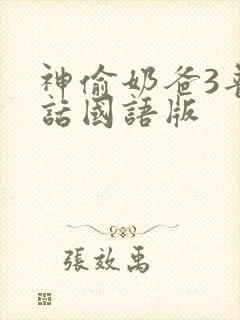 神偷奶爸3普
話國語版
張效禹